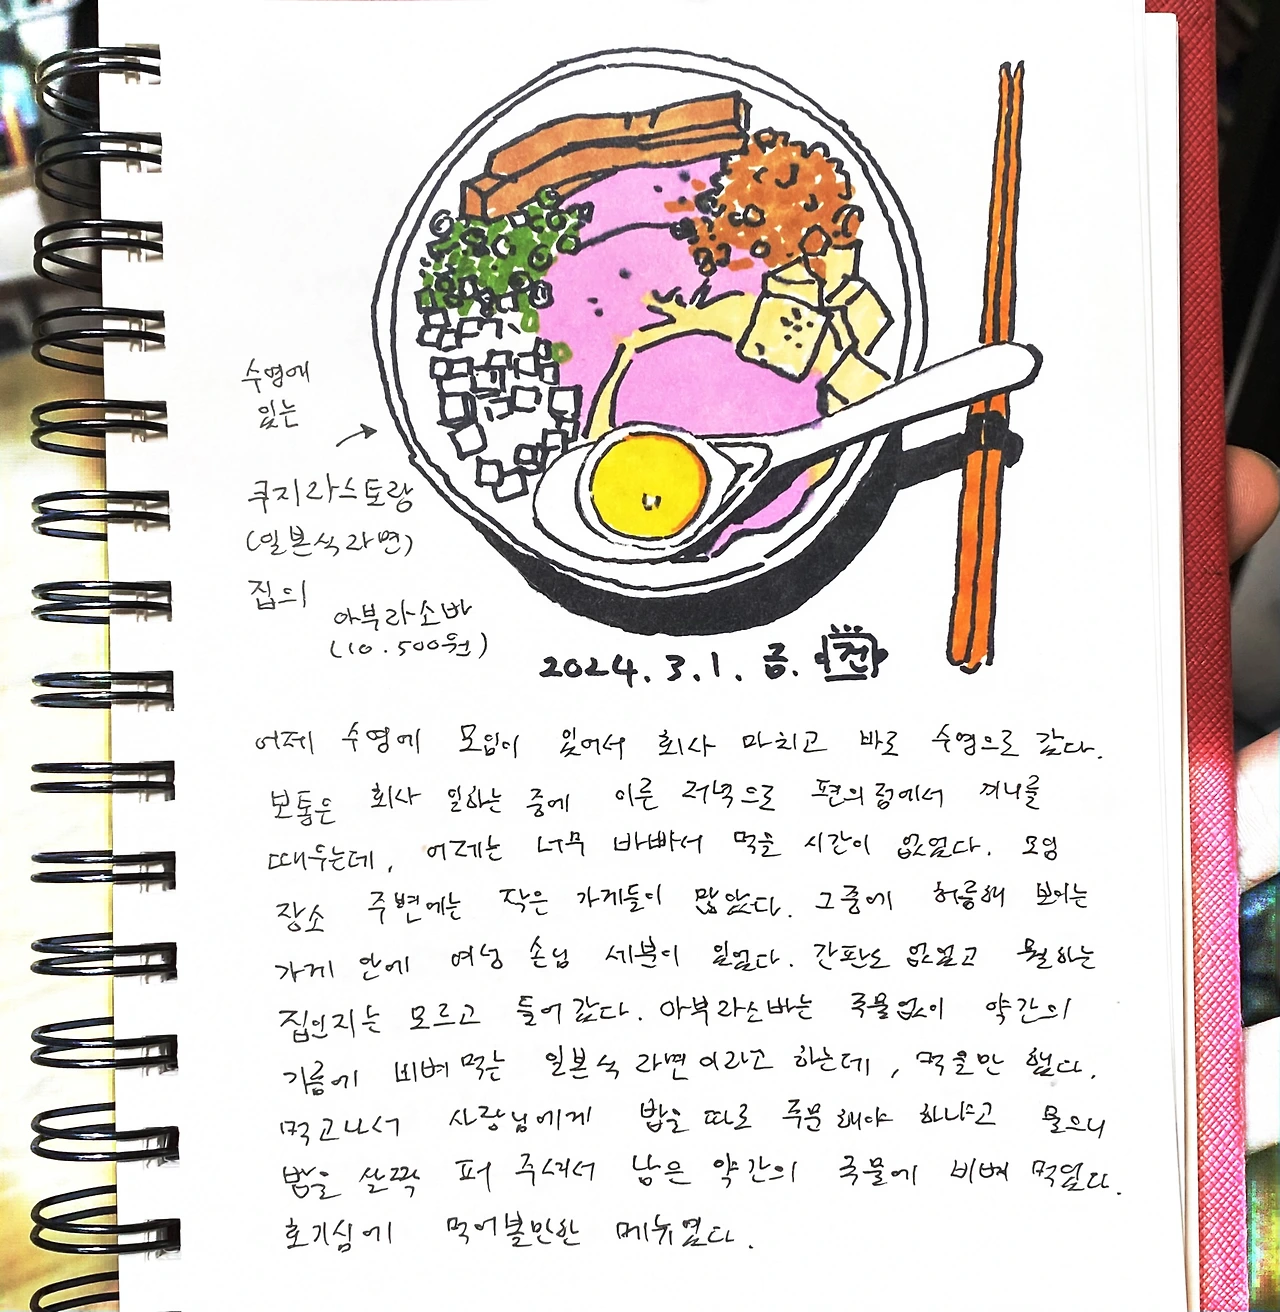 수영에
있는
쿠지라스토랑
(일본식라면)
집의
아부라소바
(10.500원)
2024.3.1.금. 전
어제 수영에 모임이 있어서 회사 마치고 바로 수영으로 갔다.
보통은 회사 일하는 중에 이른 저녁으로 편의점에서 끼니를
때우는데, 어제는 너무 바빠서 먹을 시간이 없었다. 모임
장소 주변에는 작은 가게들이 많았다. 그중에 허름해 보이는
가게 안에 여성 손님 세분이 있었다. 간판도 없었고 뭘하는
집인지는 모르고 들어갔다. 아부라소바는 국물없이 약간의
기름에 비벼먹는 일본식 라면이라고 하는데, 먹을만 했다.
먹고나서 사장님에게 밥을 따로 주문해야 하냐고 물으니
밥을 살짝 퍼 주셔서 남은 약간의 국물에 비벼 먹었다.
호기심에 먹어볼만한 메뉴였다.